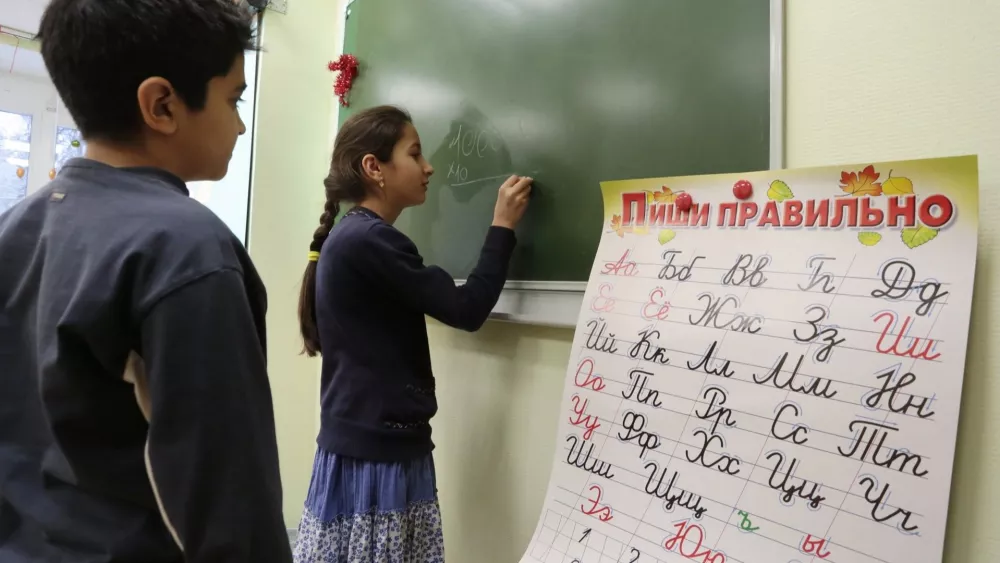 Пиши правильно
Аа Бб Вв Гг Дд
Ее Ёё Жж Зз Ии
Йй Кк Лл Мм Нн
Оо Пп Рр Сс Тт
Уу Фф Хх Цц Чч
Шш Щщ ъ ы
Ээ Юю
1 2